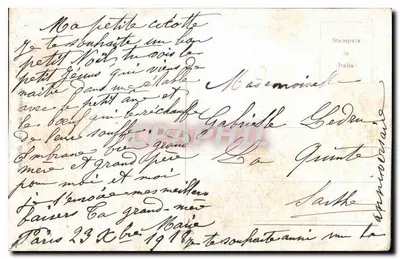 Ma petite
Je te souhaite un bon
petit Noël tu vois le
petit Jésus qui vient de
naître dans une étable
avec le petit âne et
le bœuf qui le réchauffe
de leur souffle
Embrasse grand
mère et grand père
pour moi et moi
je t'envoie mes meilleurs
baisers Ta grand-mère
Marie
Paris 23 Xbre
je te souhaite aussi un
anniversaire
Stampata
in
Italia
Mademoiselle
Gabrielle Ledru
La Quinte
Sarthe